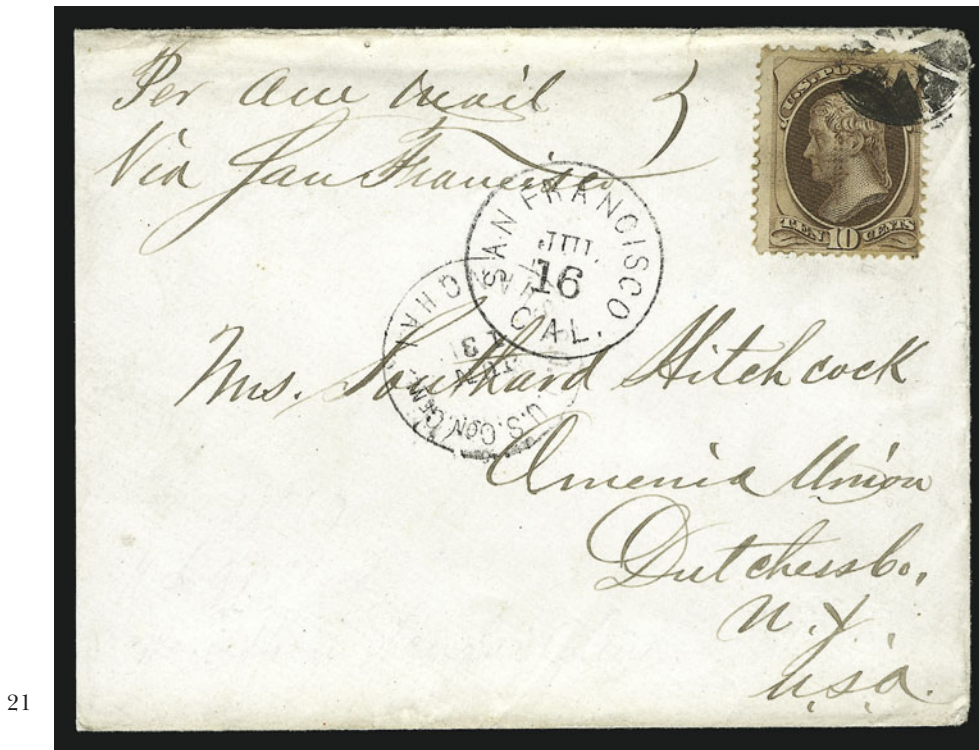 Per Am Mail
Via San Francisco
U.S. POS
TEN 10 CENTS
SAN FRANCISCO
JUL
16
CAL.
HAI
U.S. CON. GEN.
JUN
Mrs. Southard Hitchcock
Amenia Union
Dutchess Co,
N.Y.
U.S.A.
21